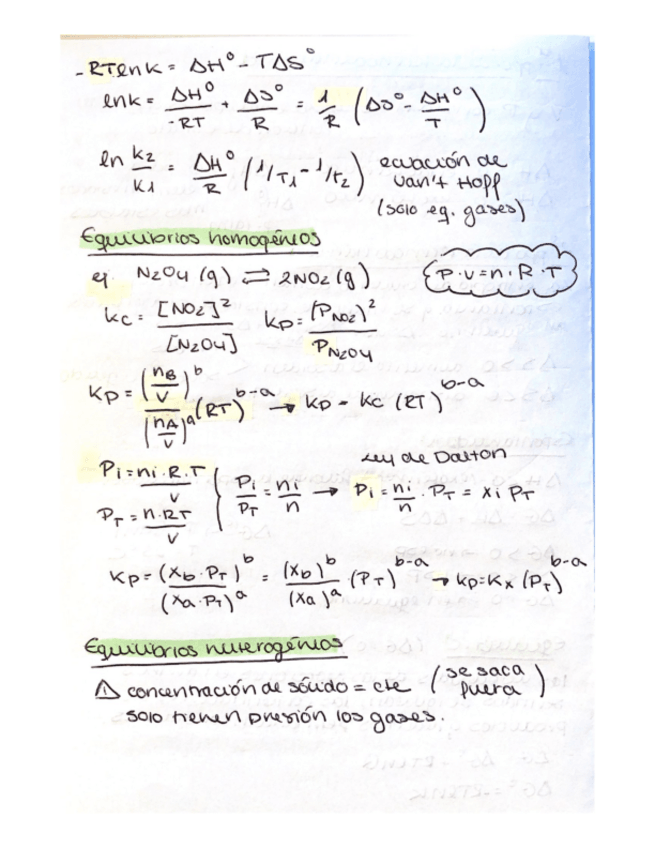 -RTlnK = ΔH° - TΔS°
lnK = ΔH°/-RT + ΔS°/R = 1/R (ΔS° - ΔH°/T)
ln K2/K1 = ΔH°/R (1/T1 - 1/T2) ecuación de Van't Hoff (solo eq. gases)
Equilibrios homogénios
ej. N2O4 (g) ⇌ 2NO2 (g) P·V=n·R·T
Kc = [NO2]²/[N2O4] Kp = (P NO2)²/P N2O4
Kp = (nB/V)^b/(nA/V)^a (RT)^b-a → Kp - Kc (RT)^b-a
Ley de Dalton
Pi = ni·R·T/V
PT = n·RT/V
Pi/PT = ni/n → Pi = ni/n · PT = xi PT
Kp = (Xb·PT)^b/(Xa·PT)^a = (Xb)^b/(Xa)^a · (PT)^b-a → Kp=Kx (PT)^b-a
Equilibrios heterogénios
⚠ concentración de sólido = cte (se saca fuera)
solo tienen presión los gases.